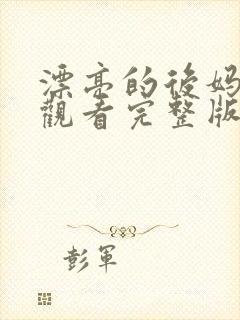 漂亮的後妈
觀看完整版
彭軍